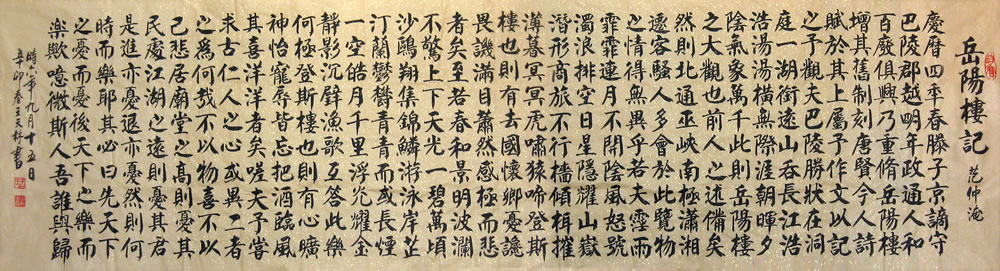 岳陽樓記
范仲淹
慶曆四年春滕子京謫守
巴陵郡越明年政通人和
百廢俱興乃重脩岳陽樓
增其舊制刻唐賢今人詩
賦於其上屬予作文以記
之予觀夫巴陵勝狀在洞
庭一湖銜遠山吞長江浩
浩湯湯橫無際涯朝暉夕
陰氣象萬千此則岳陽樓
之大觀也前人之述備矣
然則北通巫峽南極瀟湘
遷客騷人多會於此覽物
之情得無異乎若夫霪雨
霏霏連月不開陰風怒號
濁浪排空日星隱耀山嶽
潛形商旅不行檣傾楫摧
薄暮冥冥虎嘯猿啼登斯
樓也則有去國懷鄉憂讒
畏譏滿目蕭然感極而悲
者矣至若春和景明波瀾
不驚上下天光一碧萬頃
沙鷗翔集錦鱗游泳岸芷
汀蘭鬱鬱青青而或長煙
一空皓月千里浮光耀金
靜影沉璧漁歌互答此樂
何極登斯樓也則有心曠
神怡寵辱皆忘把酒臨風
其喜洋洋者矣嗟夫予嘗
求古仁人之心或異二者
之為何哉不以物喜不以
己悲居廟堂之高則憂其
民處江湖之遠則憂其君
是進亦憂退亦憂然則何
時而樂耶其必曰先天下
之憂而憂後天下之樂而
樂歟噫微斯人吾誰與歸
時六年九月十五日
辛卯春王林書